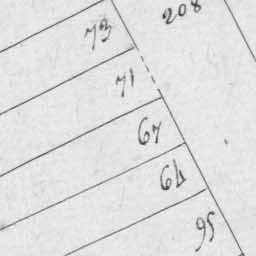 208
73
71
67
64
95